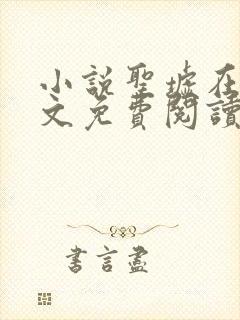 小說聖墟在
文免費閱讀
書言盡